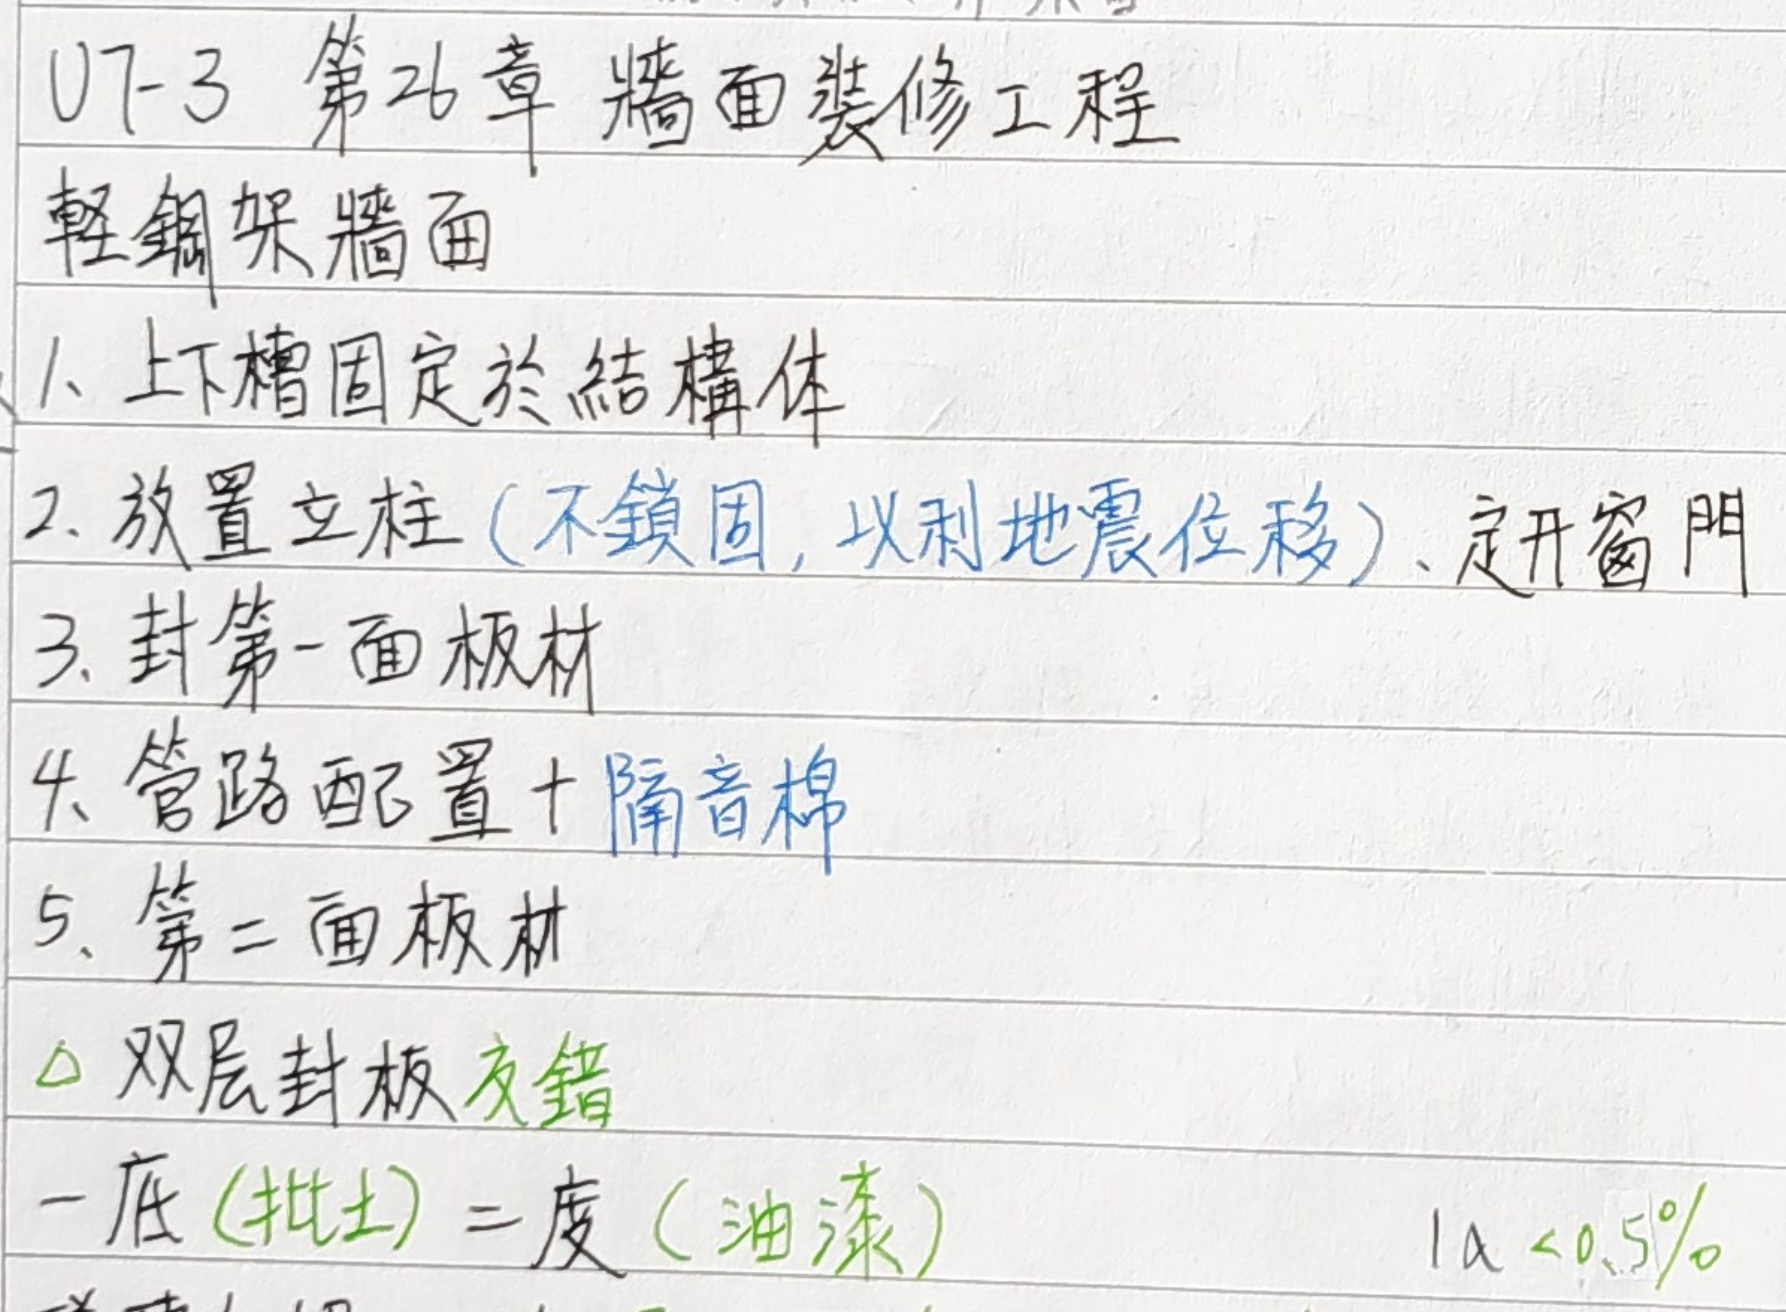 U7-3 第26章 牆面装修工程
軽鋼架牆面
1、上下槽固定於結構体
2、放置立柱(不鎖固,以利地震位移)、定开窗門
3、封第一面板材
4、管路配置+隔音棉
5、第二面板材
△ 双层封板交錯
一底(批土)二度(油漆) 1a <0.5%